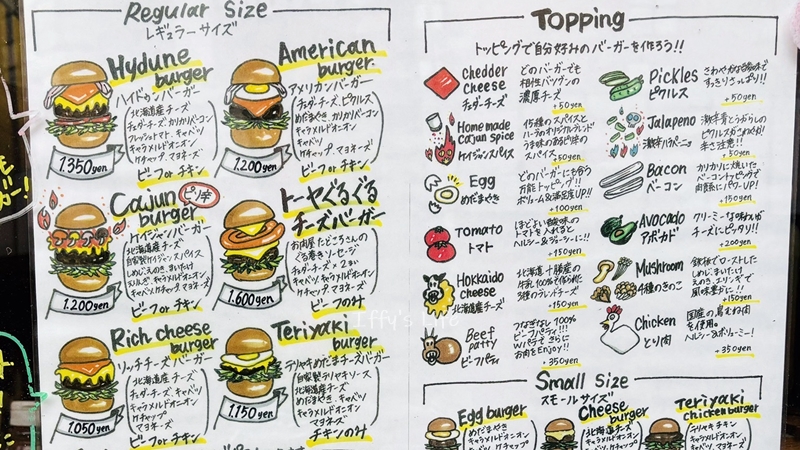 Regular Size
レギュラーサイズ
Hydune
burger
ハイドゥンバーガー
北海道産チーズ
チェダーチーズ、カリカリベーコン
フレッシュトマト、キャベツ
キャラメルドオニオン
ケチャップ、マヨネーズ
1.350yen
ビーフorチキン
American
burger
アメリカンバーガー
チェダーチーズ、ピクルス
めだまやき、カリカリベーコン
キャラメルドオニオン
キャベツ
ケチャップ、マヨネーズ
1.200yen
ビーフorチキン
Cajun
burger
ピリ辛
ケイジャンバーガー
北海道産チーズ
自家製ケイジャンスパイス
しめじ、えのき、まいたけ
エリンギ、キャラメルドオニオン
キャベツ
ケチャップ、マヨネーズ
1.200yen
ビーフorチキン
トーヤぐるぐる
チーズバーガー
お肉屋たどころさんの
ぐる巻きソーセージ
チェダーチーズ×2まい
キャベツ、キャラメルドオニオン
ケチャップ、マヨネーズ
1.600yen
ビーフのみ
Rich cheese
burger
リッチチーズバーガー
北海道産チーズ
チェダーチーズ、キャベツ
キャラメルドオニオン
ケチャップ
マヨネーズ
1.050yen
ビーフorチキン
Teriyaki
burger
テリヤキめだまチーズバーガー
自家製テリヤキソース
北海道産チーズ
めだまやき、キャベツ
キャラメルドオニオン
マヨネーズ
1.150yen
チキンのみ
TOPPing
トッピングで自分好みのバーガーを作ろう!!
Chedder
cheese
チェダーチーズ
どのバーガーでも
相性バツグンの
濃厚チーズ
+50yen
Homemade
cajun spice
ケイジャンスパイス
15種のスパイスと
ハーブのオリジナルブレンド
うま味のあるピリ辛の
スパイス
+50yen
Egg
めだまやき
どのバーガーにも合う
万能トッピング!!
ボリューム&満足度UP!!
+100yen
Tomato
トマト
ほどよい酸味の
トマトを入れると
ヘルシー&ジューシーに!!
+150yen
Hokkaido
cheese
北海道チーズ
北海道十勝産の
生乳100%で作られた
3種のブレンドチーズ
+150yen
Beef
patty
ビーフパティ
つなぎなし100%
ビーフパティ!!!
Wパティでさらに
お肉をEnjoy!!
+350yen
Pickles
ピクルス
さわやかな酸味で
すっきりさっぱり!!
+50yen
Jalapeno
激辛ハラペーニョ
激辛青とうがらしの
ピクルスがクセになる!
辛さ注意!!
+50yen
Bacon
ベーコン
カリカリに焼いた
ベーコントッピングで
肉感にパワーUP!
+150yen
Avocado
アボカド
クリーミーな味わいが
チーズにピッタリ!!
+200yen
Mushroom
4種のきのこ
鉄板でローストした
しめじ、まいたけ
えのき、エリンギで
風味豊かに!!
+150yen
Chicken
とり肉
国産の鳥むね肉
を使用。
ヘルシー&ボリューミー!
+350yen
Small Size
スモールサイズ
Egg burger
めだまやき
キャラメルドオニオン
キャベツ、ケチャップ
Cheese
burger
北海道チーズ
キャラメルドオニオン
キャベツ、ケチャップ
Teriyaki
chicken burger
テリヤキチキン
キャラメルドオニオン
キャベツ、マヨネーズ
Iffy's Life